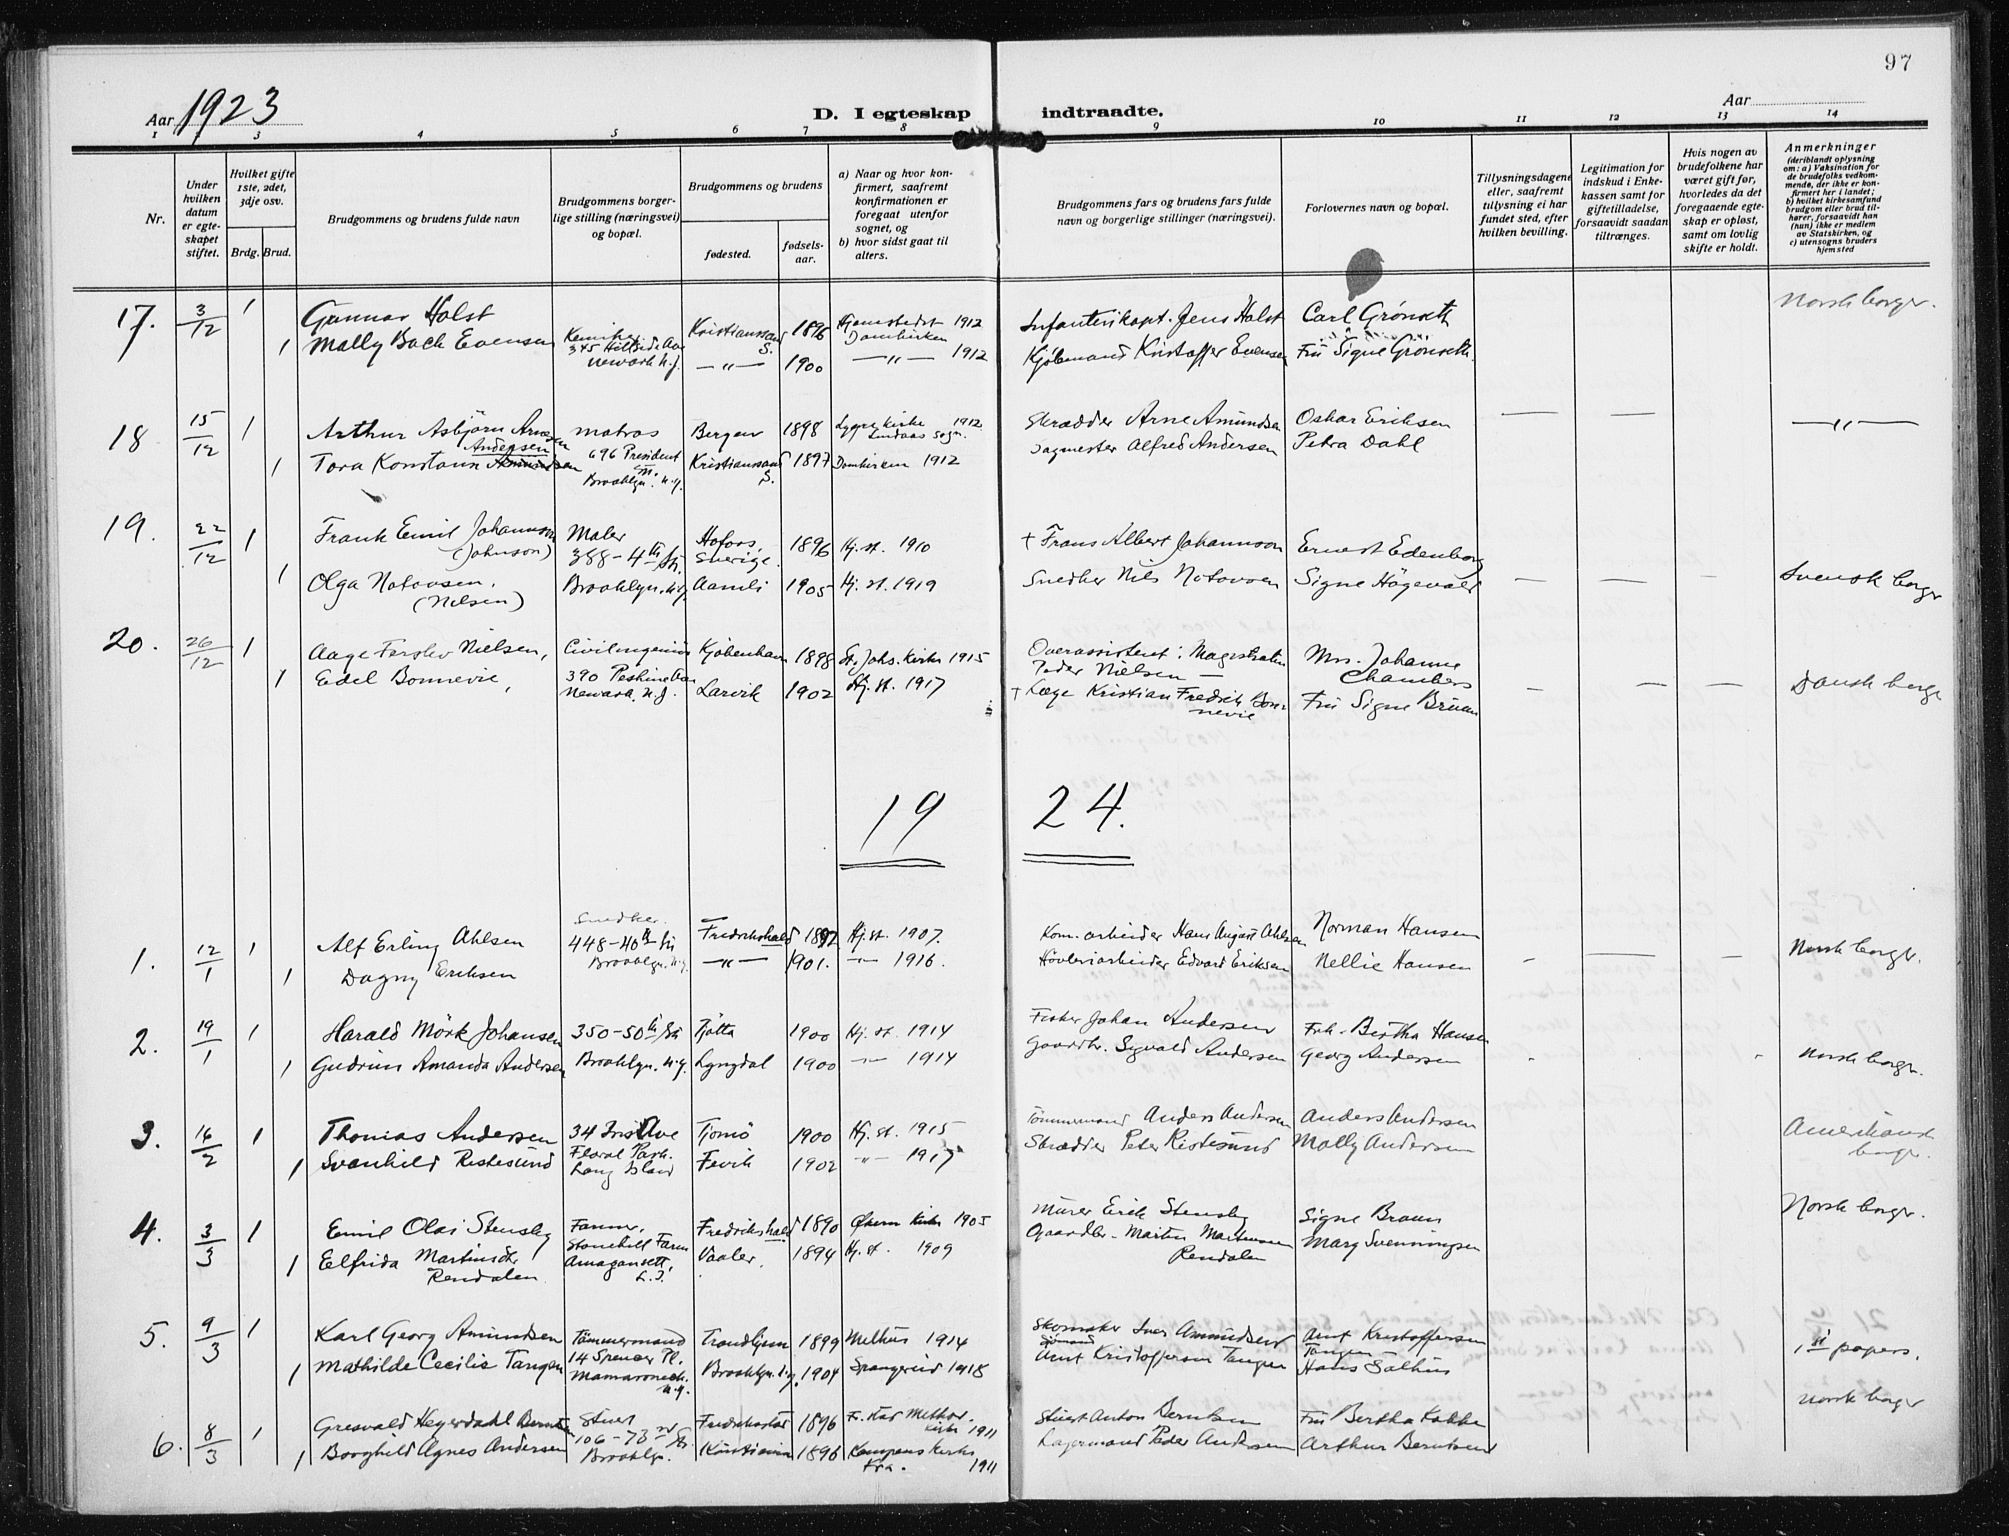 97
Aar 1923
D. I egteskap indtraadte.
Aar
1 2 3 4 5 6 7 8 9 10 11 12 13 14
Nr.
Under hvilken datum er egteskapet stiftet.
Hvilket gifte 1ste, 2det, 3dje osv.
Brdg. Brud.
Brudgommens og brudens fulde navn
Brudgommens borgerlige stilling (næringsvei) og bopæl.
Brudgommens og brudens
fødested.
fødselsaar.
a) Naar og hvor konfirmert, saafremt konfirmationen er foregaat utenfor sognet, og
b) hvor sidst gaat til alters.
Brudgommens fars og brudens fars fulde navn og borgerlige stillinger (næringsvei).
Forlovernes navn og bopæl.
Tillysningsdagene eller, saafremt tillysning ei har fundet sted, efter hvilken bevilling.
Legitimation for indskud i Enkekassen samt for giftetilladelse, forsaavidt saadan tiltrænges.
Hvis nogen av brudefolkene har været gift før, hvorledes da det foregaaende egteskap er opløst, samt om lovlig skifte er holdt.
Anmerkninger
(deriblandt oplysning om: a) Vaksination for de brudefolks vedkommende, der ikke er konfirmert her i landet; b) hvilket kirkesamfund brudgom eller brud tilhører, forsaavidt han (hun) ikke er medlem av Statskirken, og c) utensogns bruders hjemsted
17. 3/12 1 Gunnar Holst Kemiker Kristianssand S. 1896 Hjemstedet 1912 Infanterikapt. Jens Holst Carl Grönseth Norsk borger.
1 Molly Bach Evensen 345 Hillside Ave Newark N.J. —"— 1900 Domkirken —"— 1912 Kjöbmand Kristoffer Evensen Fru Signe Grönseth.
18 15/12 1 Arthur Asbjörn Arnesen matros Bergen 1898 Lygre Kirke Lindaas Sogn. 1912 Skrædder Arne Amundsen Oskar Eriksen — — —"—
Andersen
1 Tora Konstann Amundsen 696 President St. Brooklyn. N.Y. Kristianssand S. 1897 Domkirken 1912 Alfred Andersen Petra Dahl
19. 22/12 1 Frank Emil Johannson (Johnson) Maler Hofors, Sverige. 1896 Hj. st. 1910 † Frans Albert Johannson Ernest Edenborg
388-4th St.
1 Olga Notovsen, (Nilsen) Brooklyn. N.Y. Aamli 1905 Hj. st. 1919 Snedker Nils Notovsen Signe Högevold — — — Svensk borger
20. 26/12 1 Aage Forslev Nielsen, Civilingeniör Kjöbenhavn 1898 St. Johs. Kirke 1915 Overassistent i Magistraten Peder Nielsen — Mrs. Johanne Chambers
1 Edel Bonnevie, 390 Newark. N.J. Larvik 1902 Hj. st. 1917 † Læge Kristian Fredrik Bonnevie Fru Signe Bruun — — — Dansk borger
19 24.
1. 12/1 1 Alf Erling Ahlsen Snedker. Fredrikshald 1892 Hj. st. 1907. Kom. arbeider Hans August Ahlsen Norman Hansen
448-40th St. Brooklyn. N.Y.
1 Dagny Eriksen —"— 1901. —"— 1916. Hövleriarbeider Edvard Eriksen Nellie Hansen — — — Norsk borger.
2. 19/1 1 Harald Mörk Johansen 350-50th St. Tjötta 1900 Hj. st. 1914 Fisker Johan Andersen Frk. Bertha Hansen
1 Gudrun Amanda Andersen Brooklyn. N.Y. Lyngdal 1900 —"— 1914 Gaardbr. Sigvald Andersen Georg Andersen Norsk borger.
3. 16/2 1 Thomas Andersen 34 Iris Ave Tjömö 1900 Hj. st. 1915 Tömmermand Anders Andersen Anders Andersen Amerikansk borger.
1 Svanhild Ristesund Floral Park. Long Island Fevik 1902 —"— 1917 Skrædder Peter Ristesund Molly Andersen
4. 3/3 1 Emil Olai Stensby Farmer, Fredrikshald 1890 Kirke 1905 Murer Erik Stensby Signe Bruun Norsk borger.
1 Elfrida Martinsdtr Rendalen Stonehill Farm Amagansett, L.I. Vaaler. 1894 Hj. st. 1909 Gaardbr. Martin Martinsen Rendalen Mary Svenningsen
5. 9/3 1 Karl Georg Amundsen Tömmermand Trondhjem 1899 Melhus 1914 Skomaker Iver Amundsen Arnt Kristoffersen Tangen
1 Mathilde Cecilie Tangen 14 Spencer Pl. Mamaroneck. N.Y. Brooklyn. N.Y. 1904 Spangereid 1918 Sömand Arnt Kristoffersen Tangen Hans Salhus 1st papers.
6. 8/3 1 Gresvald Heyerdahl Berntsen Stuert Fredrikstad 1896 Fr. stad Methor. Kirke 1911 Stuert Anton Berntsen Fru Bertha Kokke Norsk borger
1 Borghild Agnes Andersen 106-73rd St. Brooklyn. Kristiania 1896 Kampens Kirke Kra. 1911 Lagermand Peder Andersen Arthur Berntsen